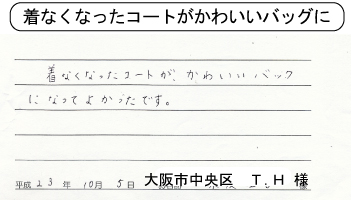 着なくなったコートがかわいいバッグに
着なくなったコートが、かわいいバック
になってよかったです。
平成23年10月5日 大阪市中央区 T.H 様